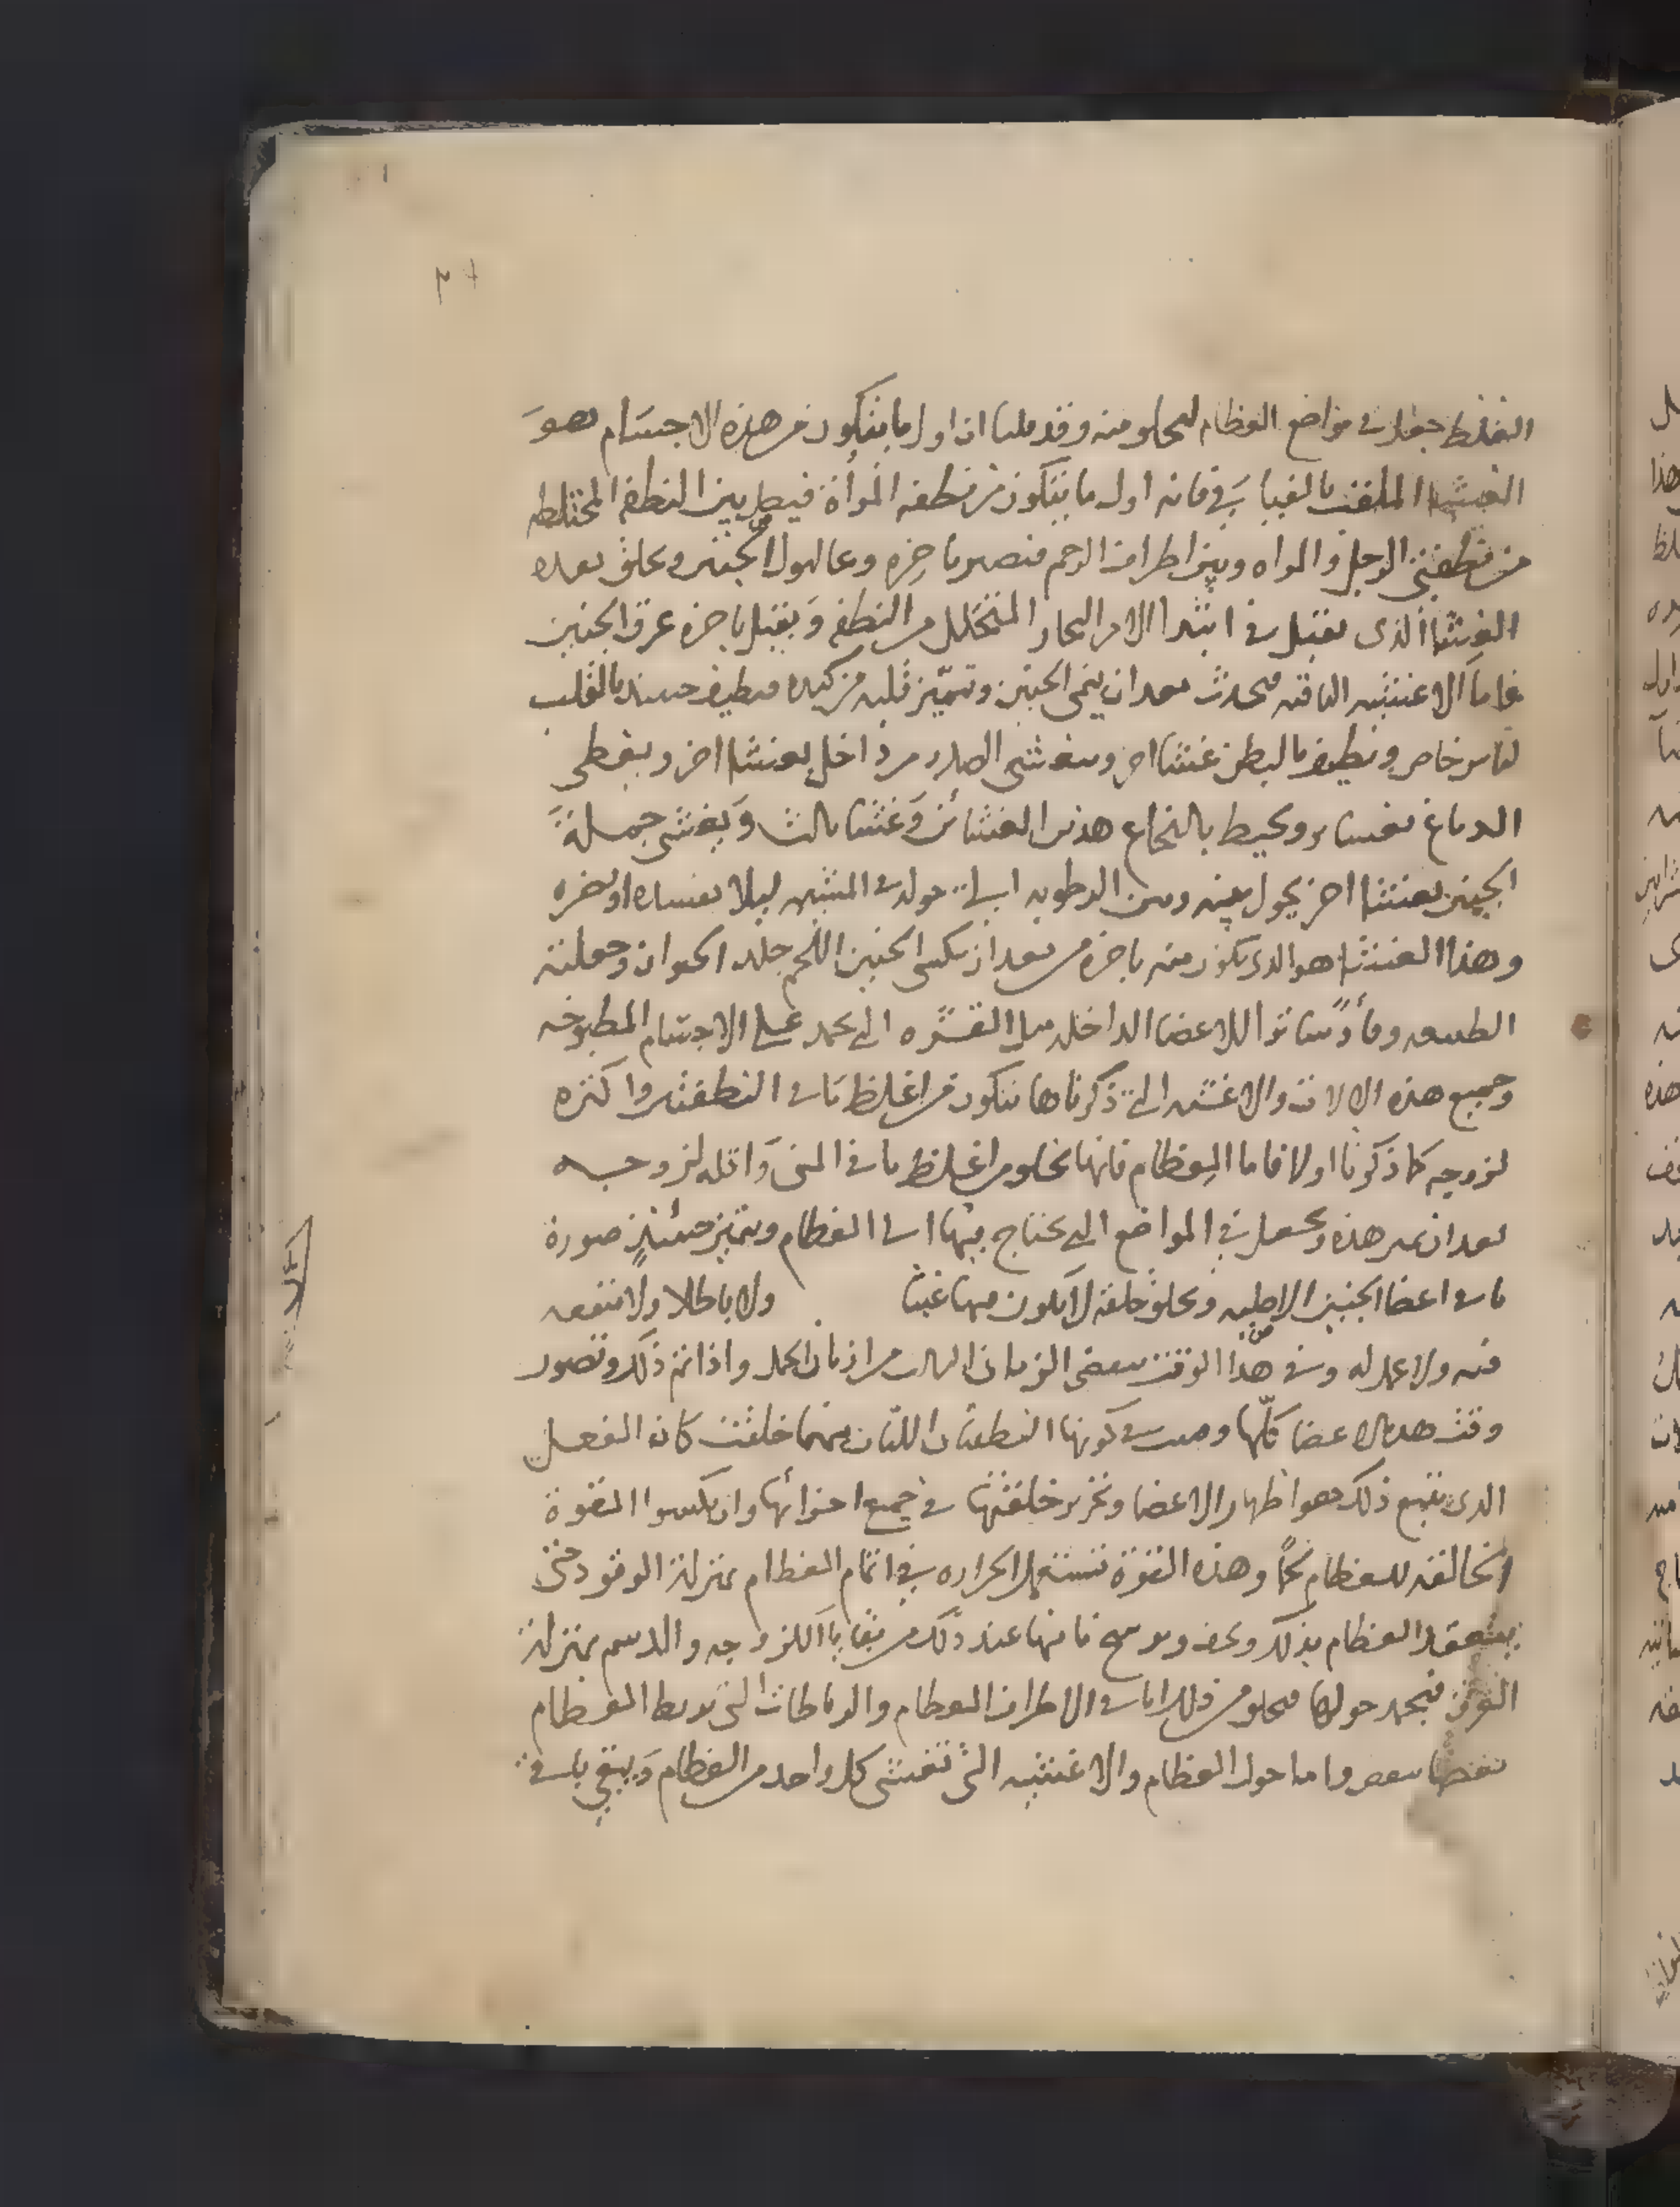 الغلظ جعل في مواضع العظام ليخلق منه وقد قلنا ان اول ما يتكون من هذه الاجسام هو
الغشا الملقب فانه اول ما يتكون من نطفة المرأة فيحل بين النطفة المختلطه
من نطفتي الرجل والمراه وبين اطراف الرحم فتصير باخره وعا لهولا الجنين ويخلق بعده
الغشا الذى يقبل في ابتدا الامر البخار المتحلل من النطفه ويقبل باخره عرق الجنين
فاما الاغشيه الباقيه فيحدث بعد ان ينمى الجنين وتميز قلبه من كبده فيطيف حينيذ بالقلب
لباس خاص ويطيف بالبطن غشا اخر ويغشى الصدر من داخل بغشا اخر ويغطى
الدماغ بغشاين ويحيط بالنخاع هذين الغشائين وغشا ثالث ويغشى جملة
الجنين بغشا اخر يحول بينه وبين الرطوبه التي حوله في المشيمه ليلا تفسده او تضره
وهذا الغشا هو الذى يكون منه باخرة من بعد ان يكسى الجنين اللحم جلد الحيوان وجعلته
الطبيعه وقا وساترا للاعضا الداخله مثل القشره التي تجمد على الاجسام المطبوخه
وجميع هذه الالات والاغشيه التي ذكرناها يتكون من اغلظ ما في النطفتين واكثره
لزوجه كما ذكرنا اولا فاما العظام فانها تخلق من اغلظ ما في المنى واقله لزوجه
بعد ان تميز هذه وتجعل في المواضع التي يحتاج فيها الى العظام ويتميز حينئذ صورة
باقي اعضا الجنين الاصليه ويخلق خلقه لا يكون فيها عبثا ولا باطلا ولا منفعه
فيه ولا عمل له وفي هذا الوقت ينقضى الزمان الثالث من ازمان الحمل واذا تم ذلك وتصور
وقت هذه الاعضا كلها في كونها النطفتان اللتان منهما خلقت كان الفعل
الذى يتبع ذلك هو اظهار الاعضا وتحرير خلقتها في جميع اجزائها وان يكسوا القوة
الخالقه للعظام لحما وهذه القوة تستعمل الحراره في اتمام العظام بمنزلة الوقود حتى
ينعقد العظام بذلك ويجف فانها عند ذلك من بقايا اللزوجه والدسم بمنزلة
العرق فيجمد حولها فيخلق من ذلك الاطراف العظام والرباطات التي تربط العظام
بعضها ببعض واما حول العظام والاغشيه التي تغشى كل واحد من العظام ويبقى باقي